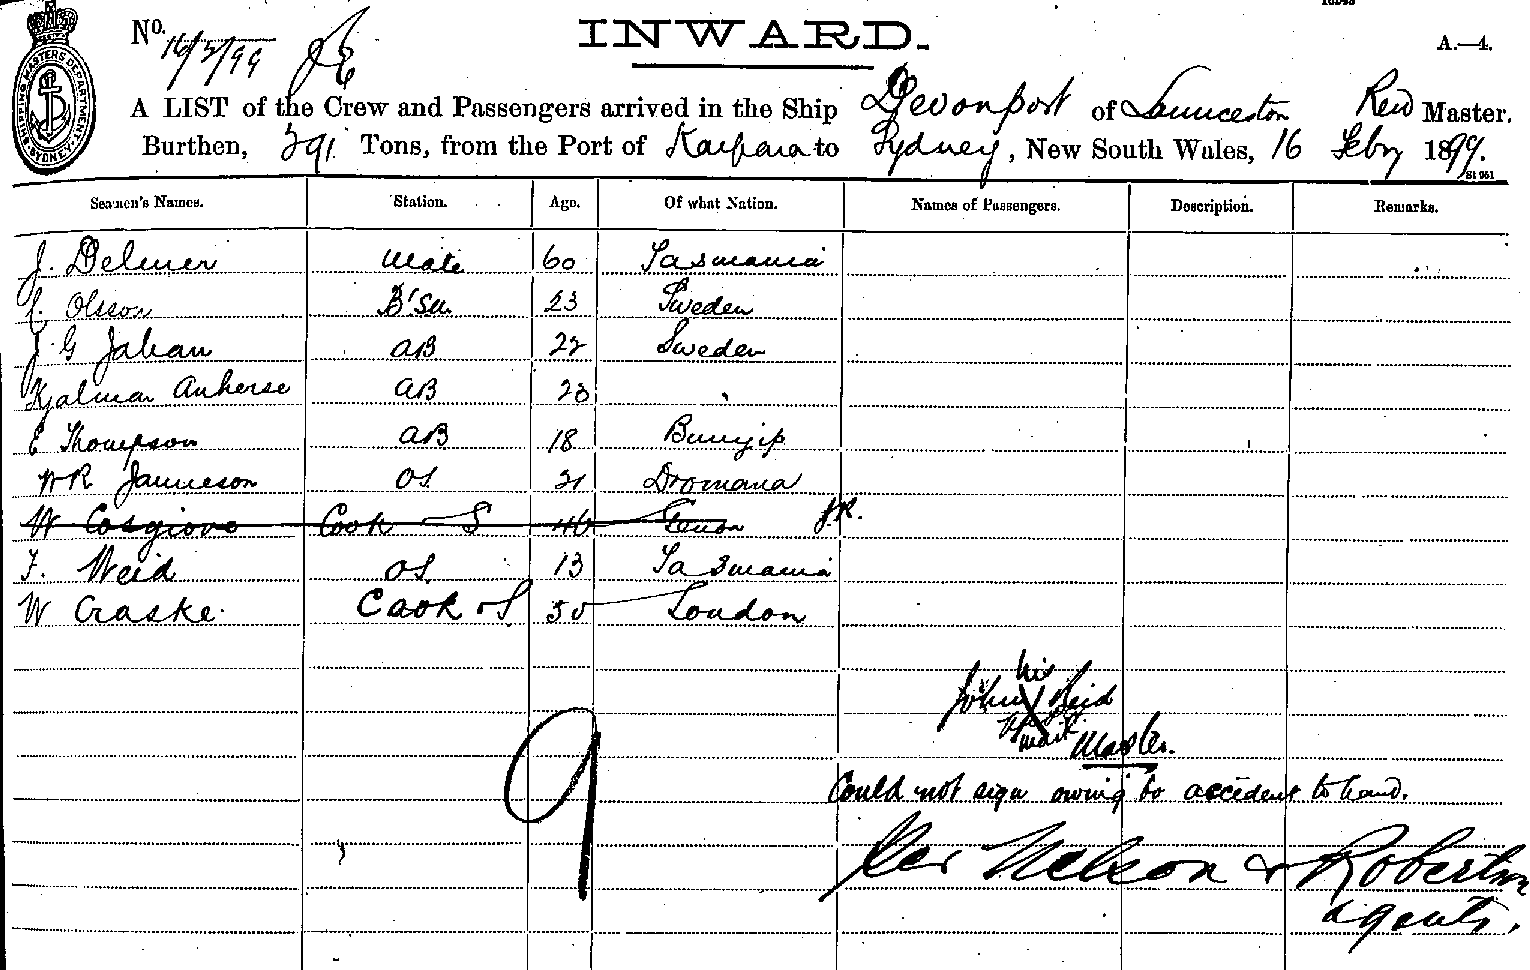 No. 16/2/99
INWARD.
A.—4.
SHIPPING MASTERS DEPARTMENT SYDNEY
A LIST of the Crew and Passengers arrived in the Ship Devonport of Launceston Reid Master.
Burthen, 291 Tons, from the Port of Kaipara to Sydney, New South Wales, 16 Febry 1899.
St 951
Seamen's Names. Station. Age. Of what Nation. Names of Passengers. Description. Remarks.
J. Delmer Mate 60 Tasmania
Olsson B'sn 23 Sweden
J. G Johan AB 22 Sweden
Hjalmar AB 23
E Thompson AB 18 Bunyip
WR Jamieson OS 21 Dromana
W Cosgrove Cook S 46
F. Weid OS 13 Tasmania
W Craske Cook & S 30 London
his
John X Reid
mark
Master.
9
Could not sign owning to accident to hand.
Per Nelson & Robertson
agents.